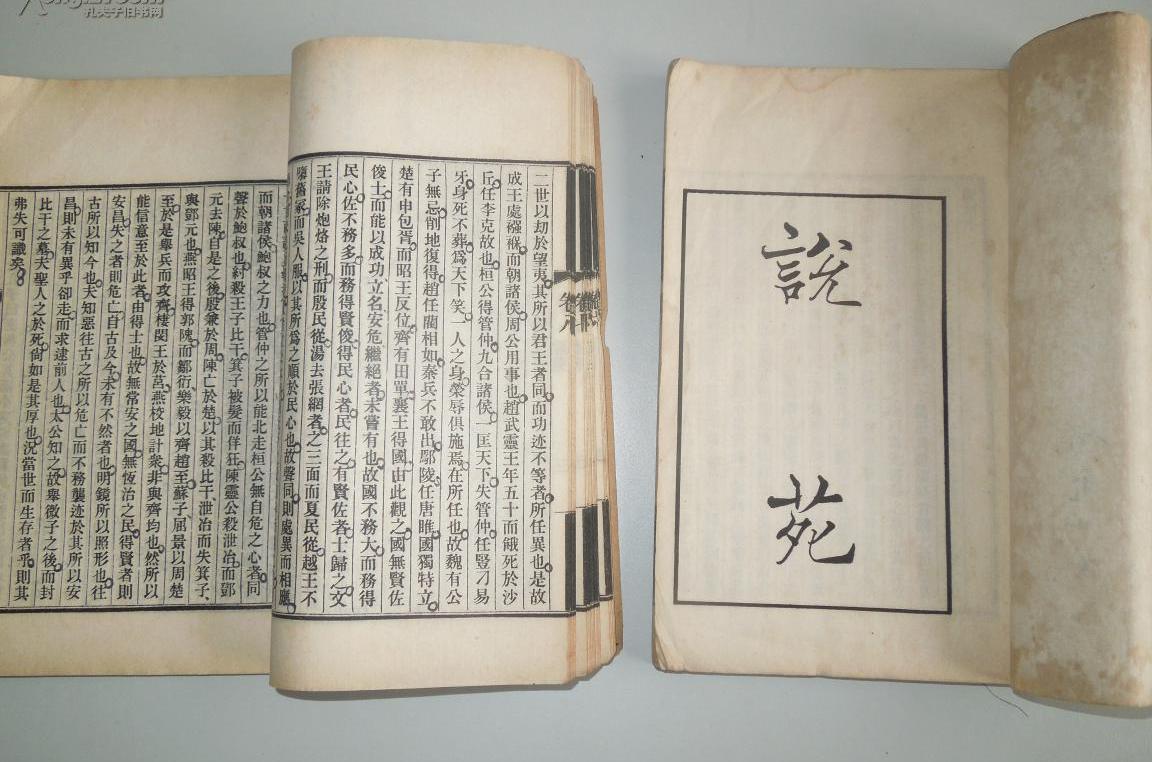 孔夫子旧书网
說苑
二世以劫於望夷。其所以君王者同。而功迹不等者。所任異也。是故
成王處襁褓。而朝諸侯。周公用事也。趙武靈王年五十而餓死於沙
丘。任李克故也。桓公得管仲。九合諸侯。一匡天下。失管仲。任豎刁易
牙。身死不葬。爲天下笑。一人之身。榮辱俱施焉。在所任也。故魏有公
子無忌。削地復得。趙任藺相如。秦兵不敢出。鄢陵任唐睢。國獨特立。
楚有申包胥。而昭王反位。齊有田單。襄王得國。由此觀之。國無賢佐
俊士。而能以成功立名。安危繼絕者。未嘗有也。故國不務大。而務得
民心。佐不務多。而務得賢俊。得民心者。民往之。有賢佐者。士歸之。文
王請除炮烙之刑。而殷民從。湯去張網者。之三面而夏民從。越王不
隳舊冢。而吳人服。以其所爲之順於民心也。故聲同。則處異而相應。
而朝諸侯。鮑叔之力也。管仲之所以能北走桓公無自危之心者。同
聲於鮑叔也。紂殺王子比干。箕子被髮而佯狂。陳靈公殺泄冶。而鄧
元去陳。自是之後。殷兼於周。陳亡於楚。以其殺比干、泄冶而失箕子、
與鄧元也。燕昭王得郭隗。而鄒衍、樂毅以齊趙至。蘇子、屈景以周楚
至。於是舉兵而攻齊。棲閔王於莒。燕校地計衆。非與齊均也。然所以
能信意至於此者。由得士也。故無常安之國。無恆治之民。得賢者則
安昌。失之者則危亡。自古及今。未有不然者也。明鏡所以照形也。往
古所以知今也。夫知惡往古之所以危亡。而不務襲迹於其所以安
昌。則未有異乎卻走而求逮前人也。太公知之。故舉微子之後。而封
比干之墓。夫聖人之於死。尙如是其厚也。況當世而生存者乎。則其
弗失可識矣。
卷八